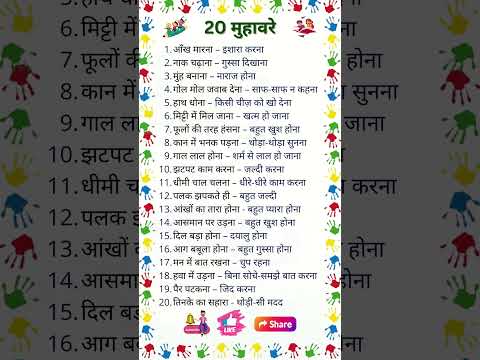 20 मुहावरे
1. आँख मारना – इशारा करना
2. नाक चढ़ाना – गुस्सा दिखाना
3. मुंह बनाना – नाराज होना
4. गोल मोल जवाब देना – साफ-साफ न कहना
5. हाथ धोना – किसी चीज़ को खो देना
6. मिट्टी में मिल जाना – खत्म हो जाना
7. फूलों की तरह हंसना – बहुत खुश होना
8. कान में भनक पड़ना – थोड़ा-थोड़ा सुनना
9. गाल लाल होना – शर्म से लाल हो जाना
10. झटपट काम करना – जल्दी करना
11. धीमी चाल चलना – धीरे-धीरे काम करना
12. पलक झपकते ही – बहुत जल्दी
13. आंखों का तारा होना - बहुत प्यारा होना
14. आसमान पर उड़ना – बहुत खुश होना
15. दिल बड़ा होना – दयालु होना
16. आग बबूला होना – बहुत गुस्सा होना
17. मन में बात रखना – चुप रहना
18. हवा में उड़ना – बिना सोचे-समझे बात करना
19. पैर पटकना – जिद करना
20. तिनके का सहारा - थोड़ी-सी मदद
LIKE
Share